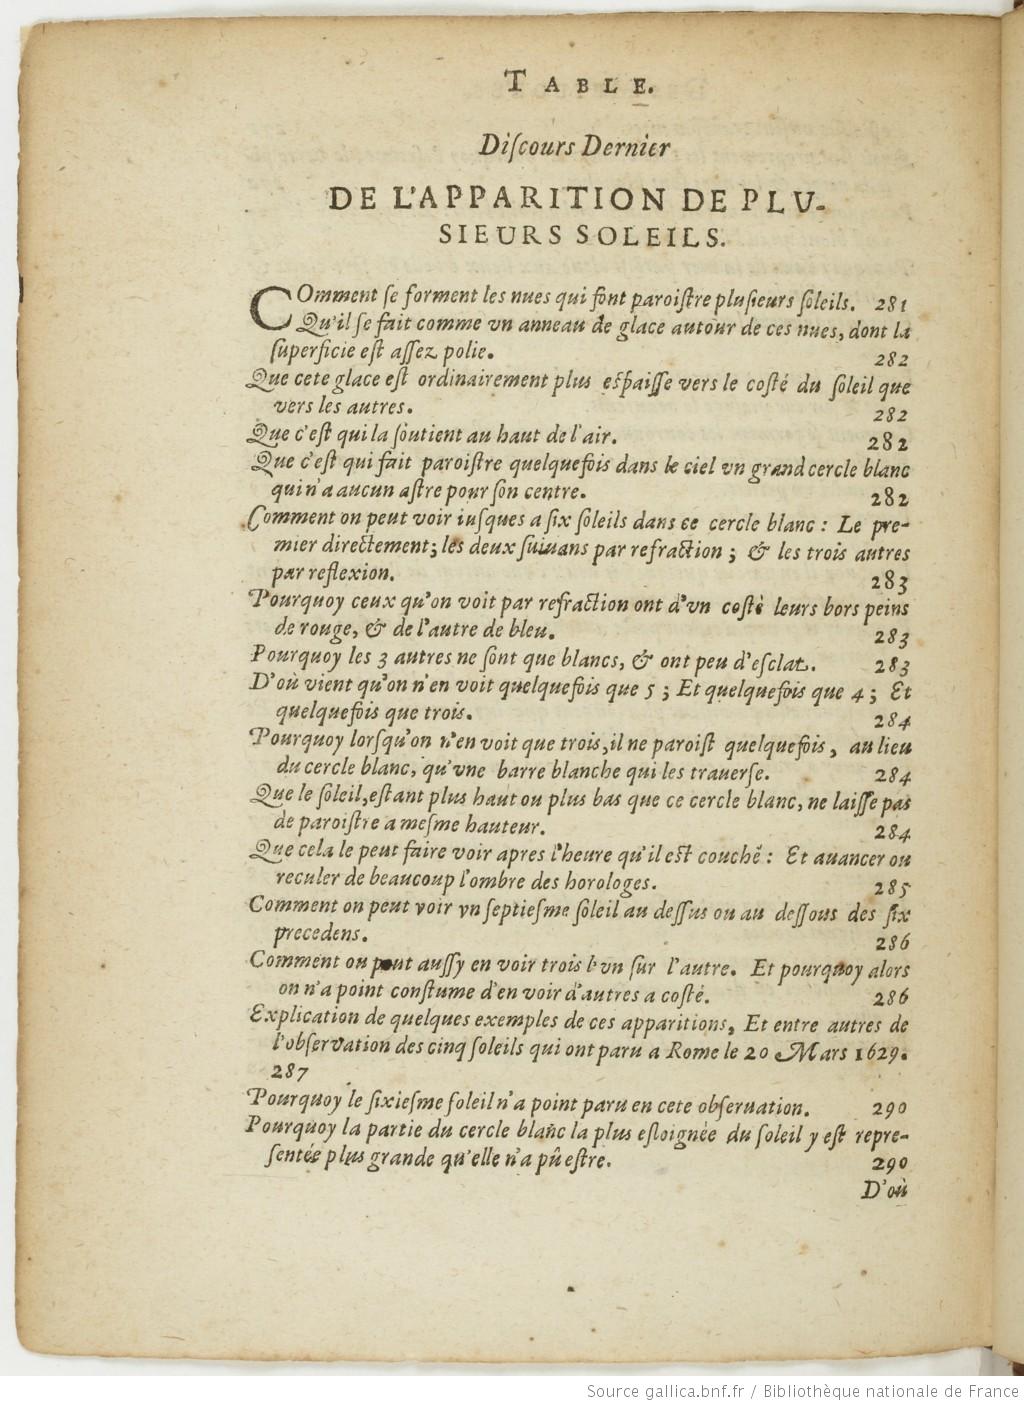 TABLE.
Diſcours Dernier
DE L'APPARITION DE PLV-
SIEURS SOLEILS.
COmment ſe forment les nues qui font paroiſtre pluſieurs ſoleils. 281
Qu'il ſe fait comme vn anneau de glace autour de ces nues, dont la
ſuperficie eſt aſſez polie. 282
Que cete glace eſt ordinairement plus eſpaiſſe vers le coſté du ſoleil que
vers les autres. 282
Que c'eſt qui la ſoutient au haut de l'air. 282
Que c'eſt qui fait paroiſtre quelquefois dans le ciel vn grand cercle blanc
qui n'a aucun aſtre pour ſon centre. 282
Comment on peut voir iuſques a ſix ſoleils dans ce cercle blanc : Le pre-
mier directement; les deux ſuiuans par refraction ; & les trois autres
par reflexion. 283
Pourquoy ceux qu'on voit par refraction ont d'vn coſté leurs bors peins
de rouge, & de l'autre de bleu. 283
Pourquoy les 3 autres ne ſont que blancs, & ont peu d'eſclat. 283
D'où vient qu'on n'en voit quelquefois que 5 ; Et quelquefois que 4 ; Et
quelquefois que trois. 284
Pourquoy lorſqu'on n'en voit que trois, il ne paroiſt quelquefois, au lieu
du cercle blanc, qu'vne barre blanche qui les trauerſe. 284
Que le ſoleil, eſtant plus haut ou plus bas que ce cercle blanc, ne laiſſe pas
de paroiſtre a meſme hauteur. 284
Que cela le peut faire voir apres l'heure qu'il eſt couché : Et auancer ou
reculer de beaucoup l'ombre des horologes. 285
Comment on peut voir vn ſeptieſme ſoleil au deſſus ou au deſſous des ſix
precedens. 286
Comment on peut auſſy en voir trois l'vn ſur l'autre. Et pourquoy alors
on n'a point conſtume d'en voir d'autres a coſté. 286
Explication de quelques exemples de ces apparitions, Et entre autres de
l'obſervation des cinq ſoleils qui ont paru a Rome le 20 Mars 1629.
287
Pourquoy le ſixieſme ſoleil n'a point paru en cete obſeruation. 290
Pourquoy la partie du cercle blanc la plus eſloignée du ſoleil y eſt repre-
ſentée plus grande qu'elle n'a pû eſtre. 290
D'où
Source gallica.bnf.fr / Bibliothèque nationale de France